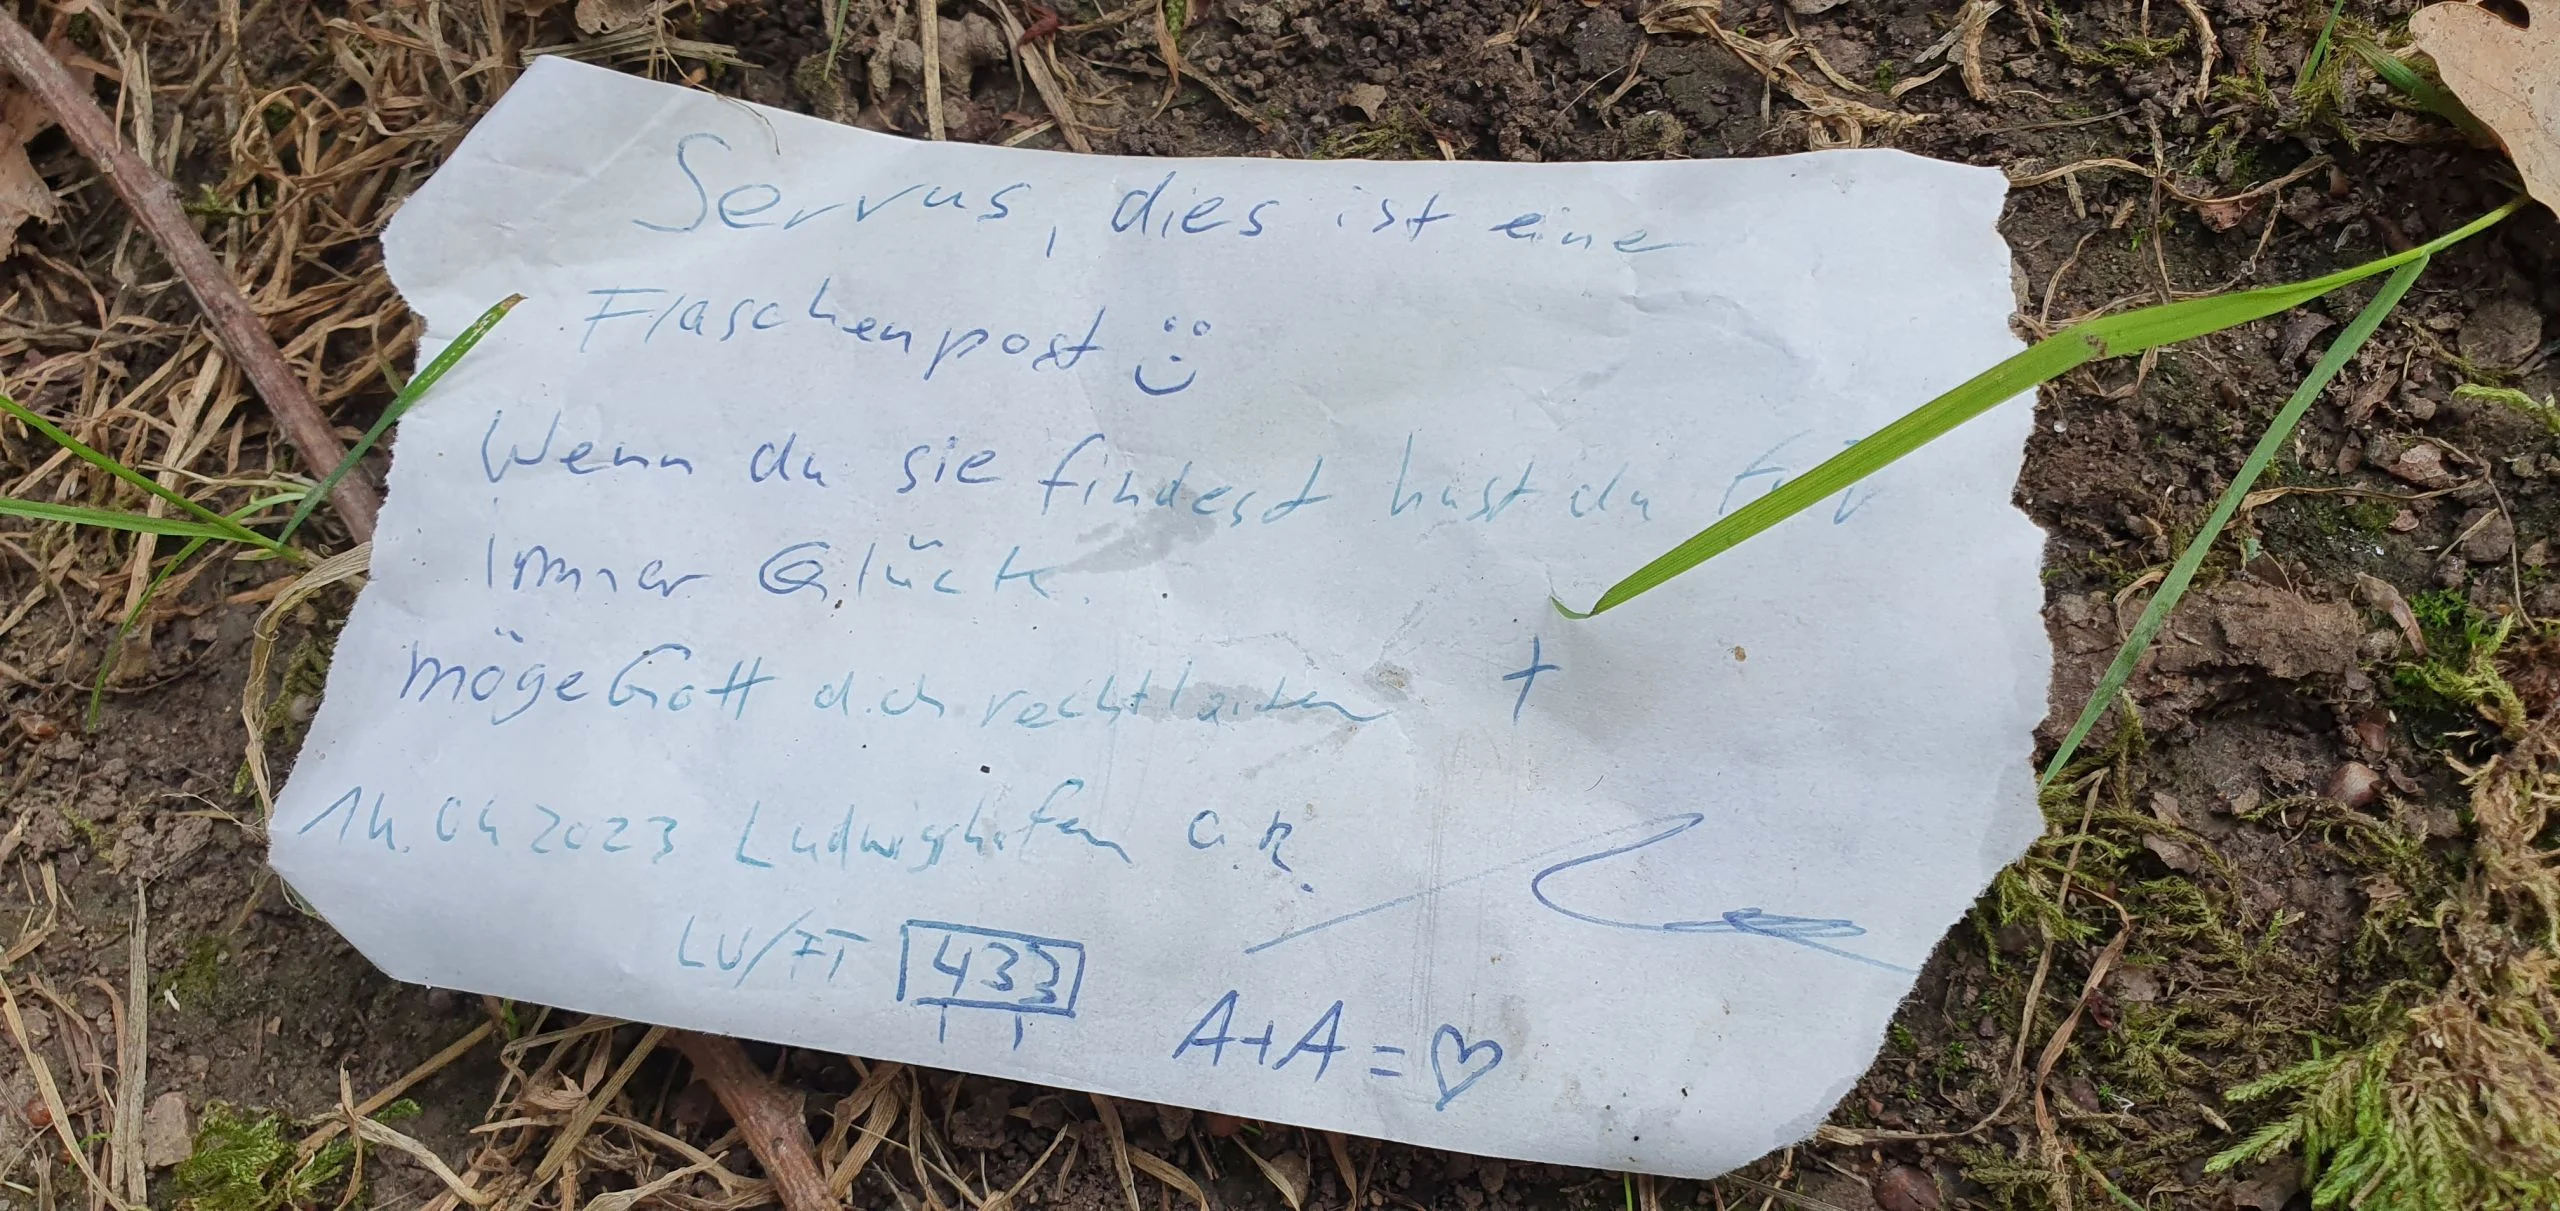 Servus, dies ist eine
Flaschenpost
Wenn du sie findest hast du für
immer Glück.
möge Gott dich rechtleiten †
14.04 2023 Ludwigshafen a.R.
LU/FT 433
A+A = ♡